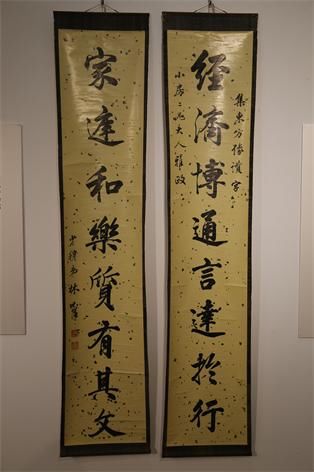 集東方像讚字
經濟博通言達於行
小房二兄大人雅政
家和樂質有其文
少穆弟林則徐